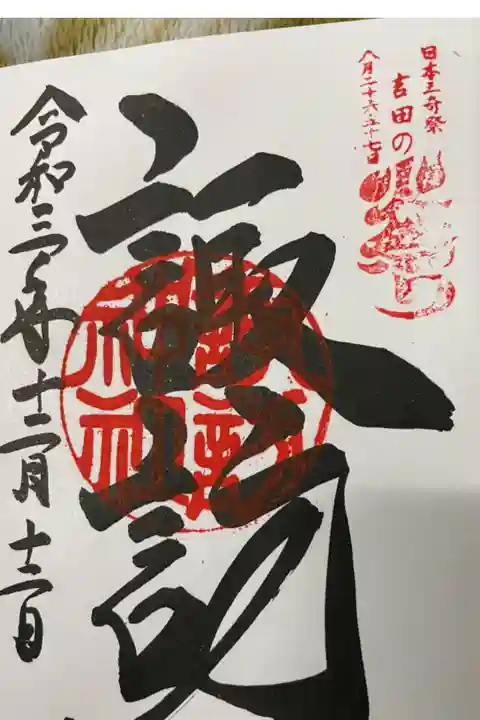 日本三奇祭
吉田の火祭り
八月二十六・二十七日
諏訪
令和三年十二月十二日